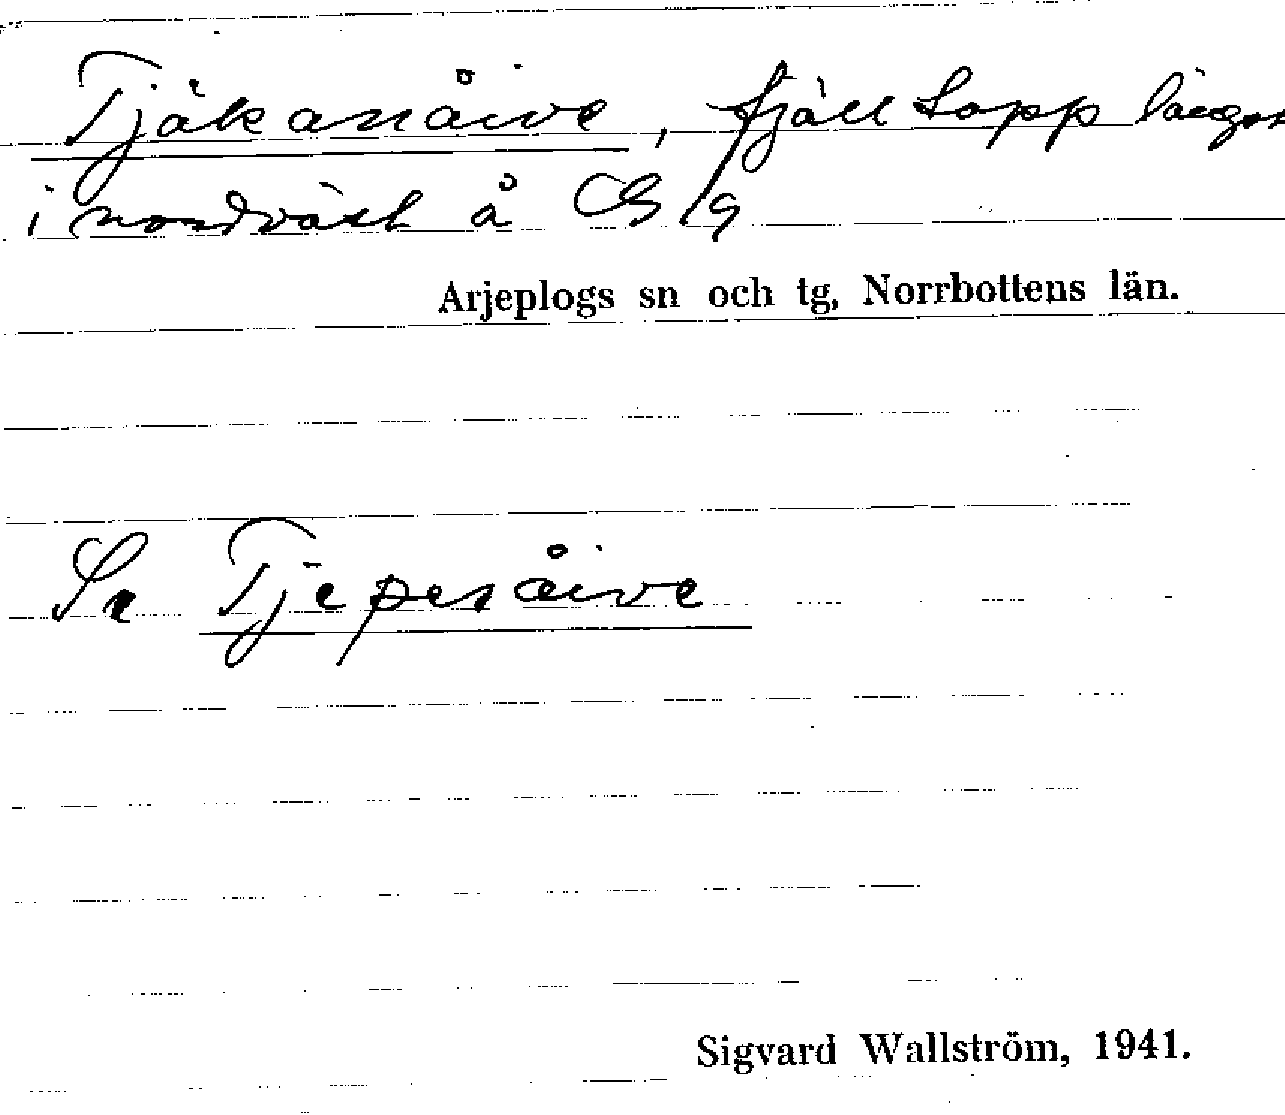 Tjäkanåive, fjälltopp längst
i nordväst å C5/9
Arjeplogs sn och tg, Norrbottens län.
Se Tjepenåive
Sigvard Wallström, 1941.